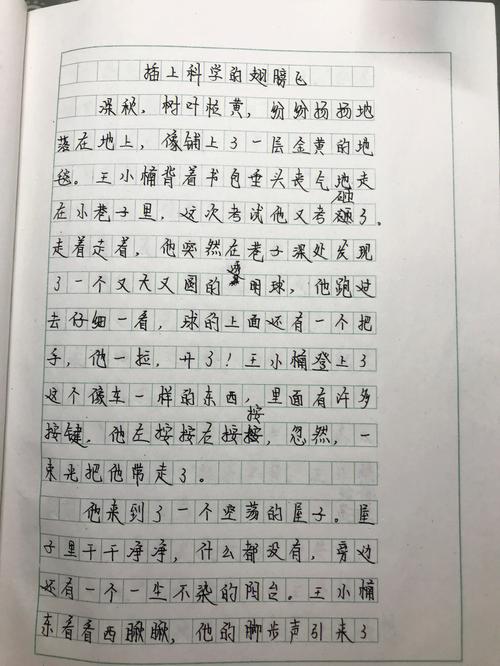 插上科学的翅膀飞
深秋，树叶枯黄，纷纷扬扬地
落在地上，像铺上了一层金黄的地
毯。王小桶背着书包垂头丧气地走
在小巷子里，这次考试他又考砸了。
走着走着，他突然在巷子深处发现
了一个又大又圆的透明球，他跑过
去仔细一看，球的上面还有一个把
手，他一拉，开了！王小桶登上了
这个像车一样的东西，里面有许多
按键，他左按按右按按，忽然，一
束光把他带走了。
他来到了一个空荡的屋子。屋
子里干干净净，什么都没有，旁边
还有一个一尘不染的阳台。王小桶
东看看西瞅瞅，他的脚步声引来了